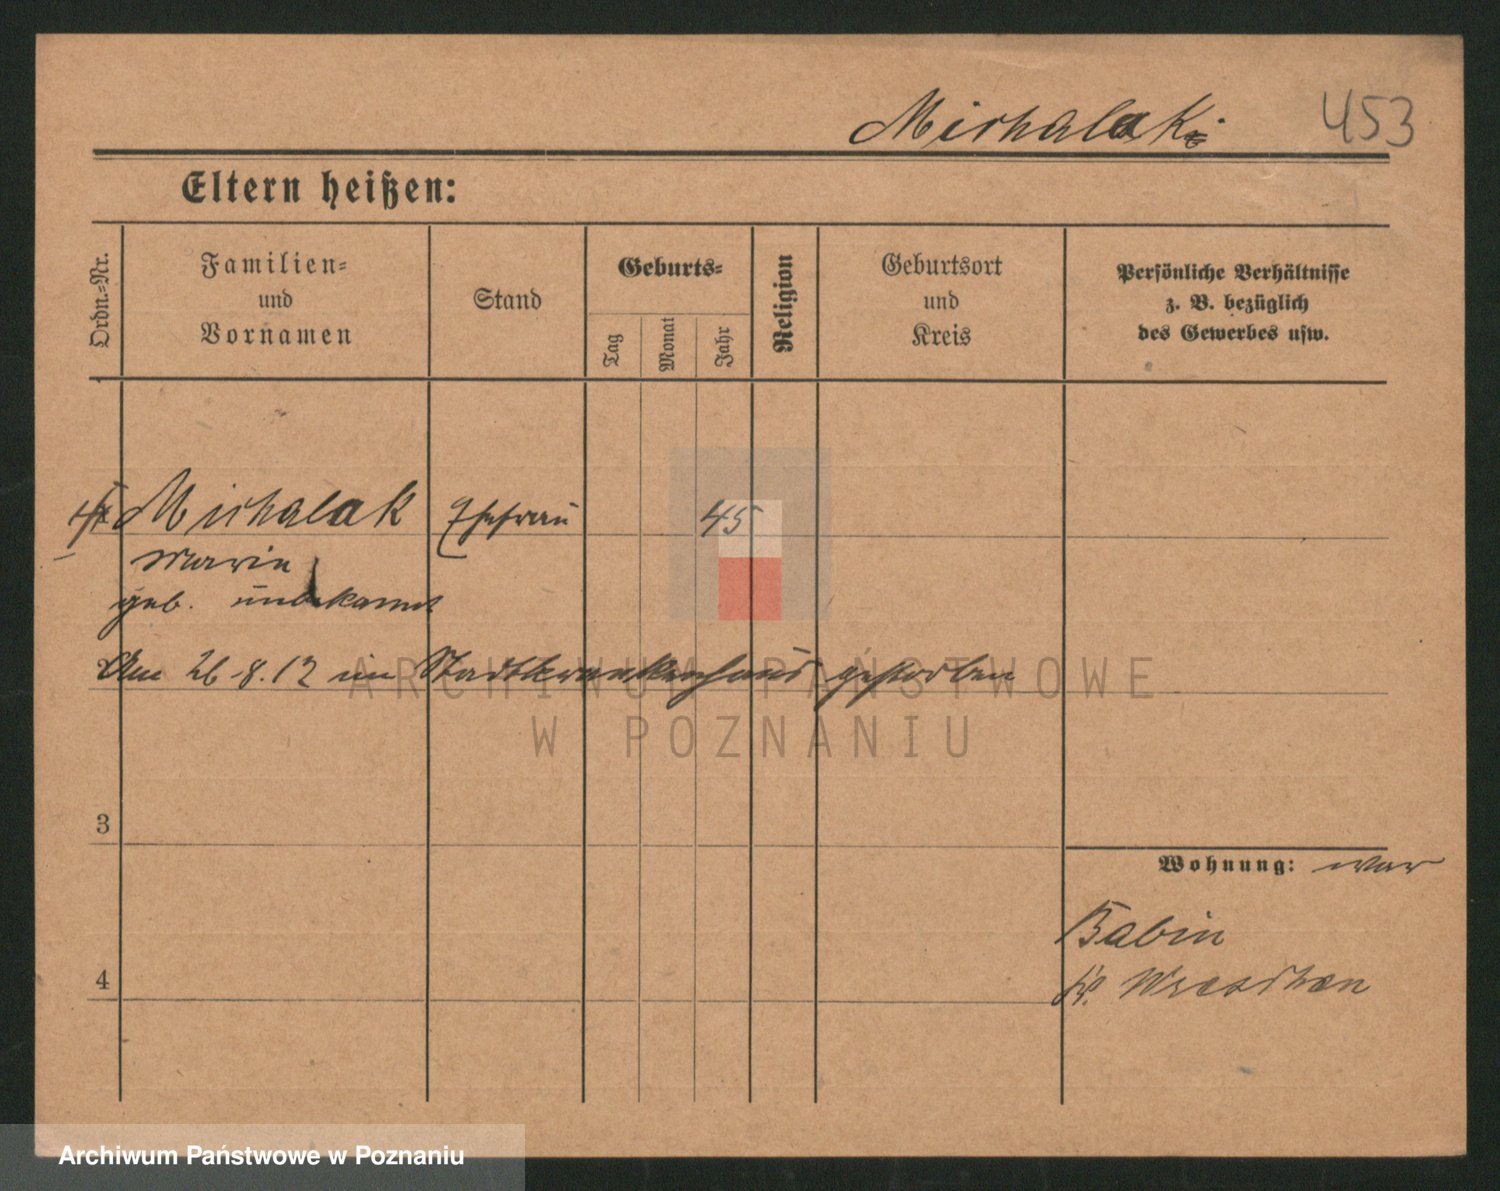 Michalak 453
Eltern heißen:
Ordn.-Nr.
Familien-
und
Vornamen
Stand
Geburts-
Tag
Monat
Jahr
Religion
Geburtsort
und
Kreis
Persönliche Verhältnisse
z. B. bezüglich
des Gewerbes usw.
Michalak Ehefrau 45
Marie
geb. unbekannt
Am 26.8.12 im Stadtkrankenhaus gestorben
ARCHIWUM PAŃSTWOWE
W POZNANIU
3
Wohnung: war
Babin
Kr. Wreschen
4
Archiwum Państwowe w Poznaniu